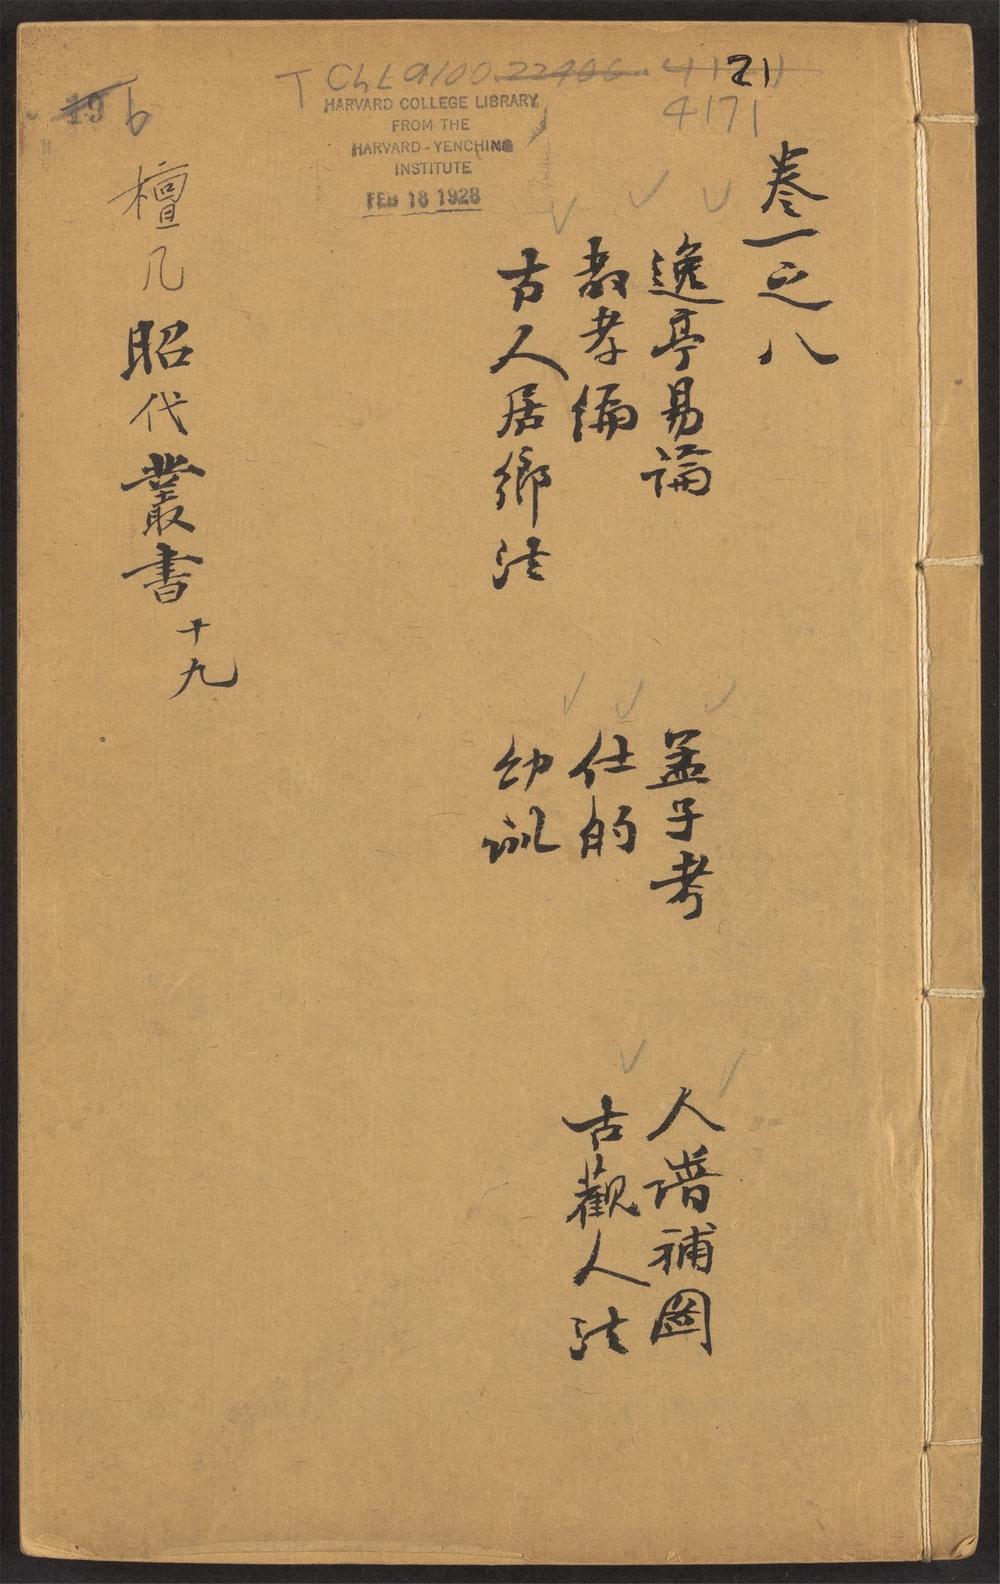 T ChL 9100 22906 41711
21
4171
19 6
HARVARD COLLEGE LIBRARY
FROM THE
HARVARD-YENCHING
INSTITUTE
FEB 18 1928
卷一之八
逸亭易論
孟子考
人譜補圖
教孝編
仕的
古觀人法
古人居鄉法
幼訓
檀几昭代叢書十九